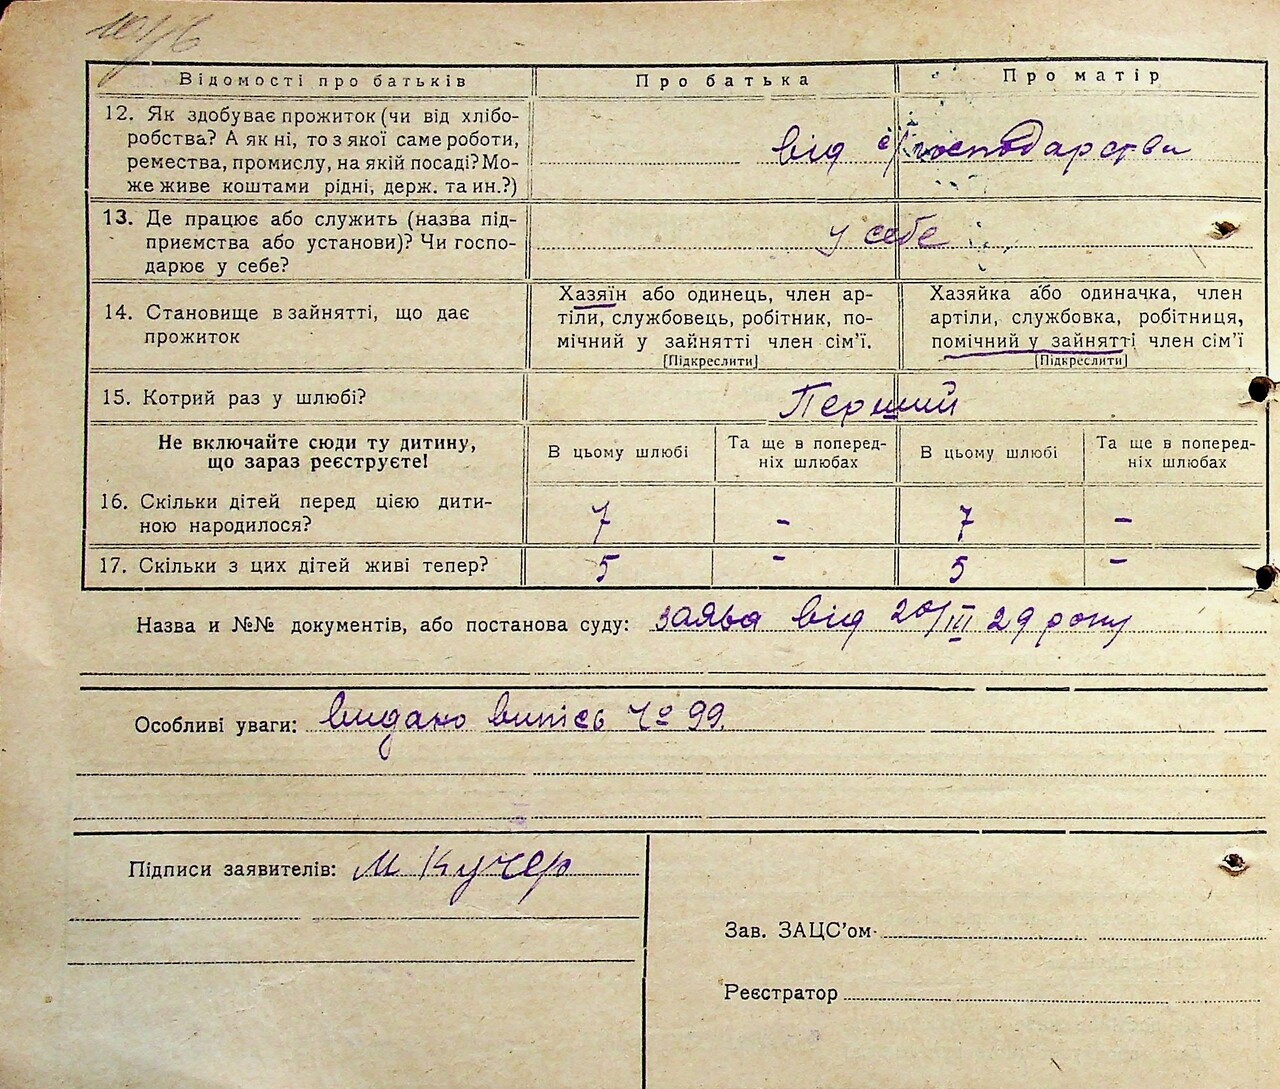 Відомості про батьків Про батька Про матір
12. Як здобуває прожиток (чи від хлібо-
робства? А як ні, то з якої саме роботи,
ремества, промислу, на якій посаді? Мо-
же живе коштами рідні, держ. та ин.?)
від с/господарства
13. Де працює або служить (назва під-
приємства або установи)? Чи госпо-
дарює у себе?
у себе
14. Становище в зайнятті, що дає
прожиток
Хазяїн або одинець, член ар-
тіли, службовець, робітник, по-
мічний у зайнятті член сім'ї.
[Підкреслити]
Хазяйка або одиначка, член
артіли, службовка, робітниця,
помічний у зайнятті член сім'ї
[Підкреслити]
15. Котрий раз у шлюбі? Перший
Не включайте сюди ту дитину,
що зараз реєструєте!
В цьому шлюбі
Та ще в поперед-
ніх шлюбах
В цьому шлюбі
Та ще в поперед-
ніх шлюбах
16. Скільки дітей перед цією дити-
ною народилося?
7 - 7 -
17. Скільки з цих дітей живі тепер? 5 - 5 -
Назва и №№ документів, або постанова суду: заява від 20/III 29 року
Особливі уваги: видано випісь № 99.
Підписи заявителів: М Кучер
Зав. ЗАЦС'ом
Реєстратор